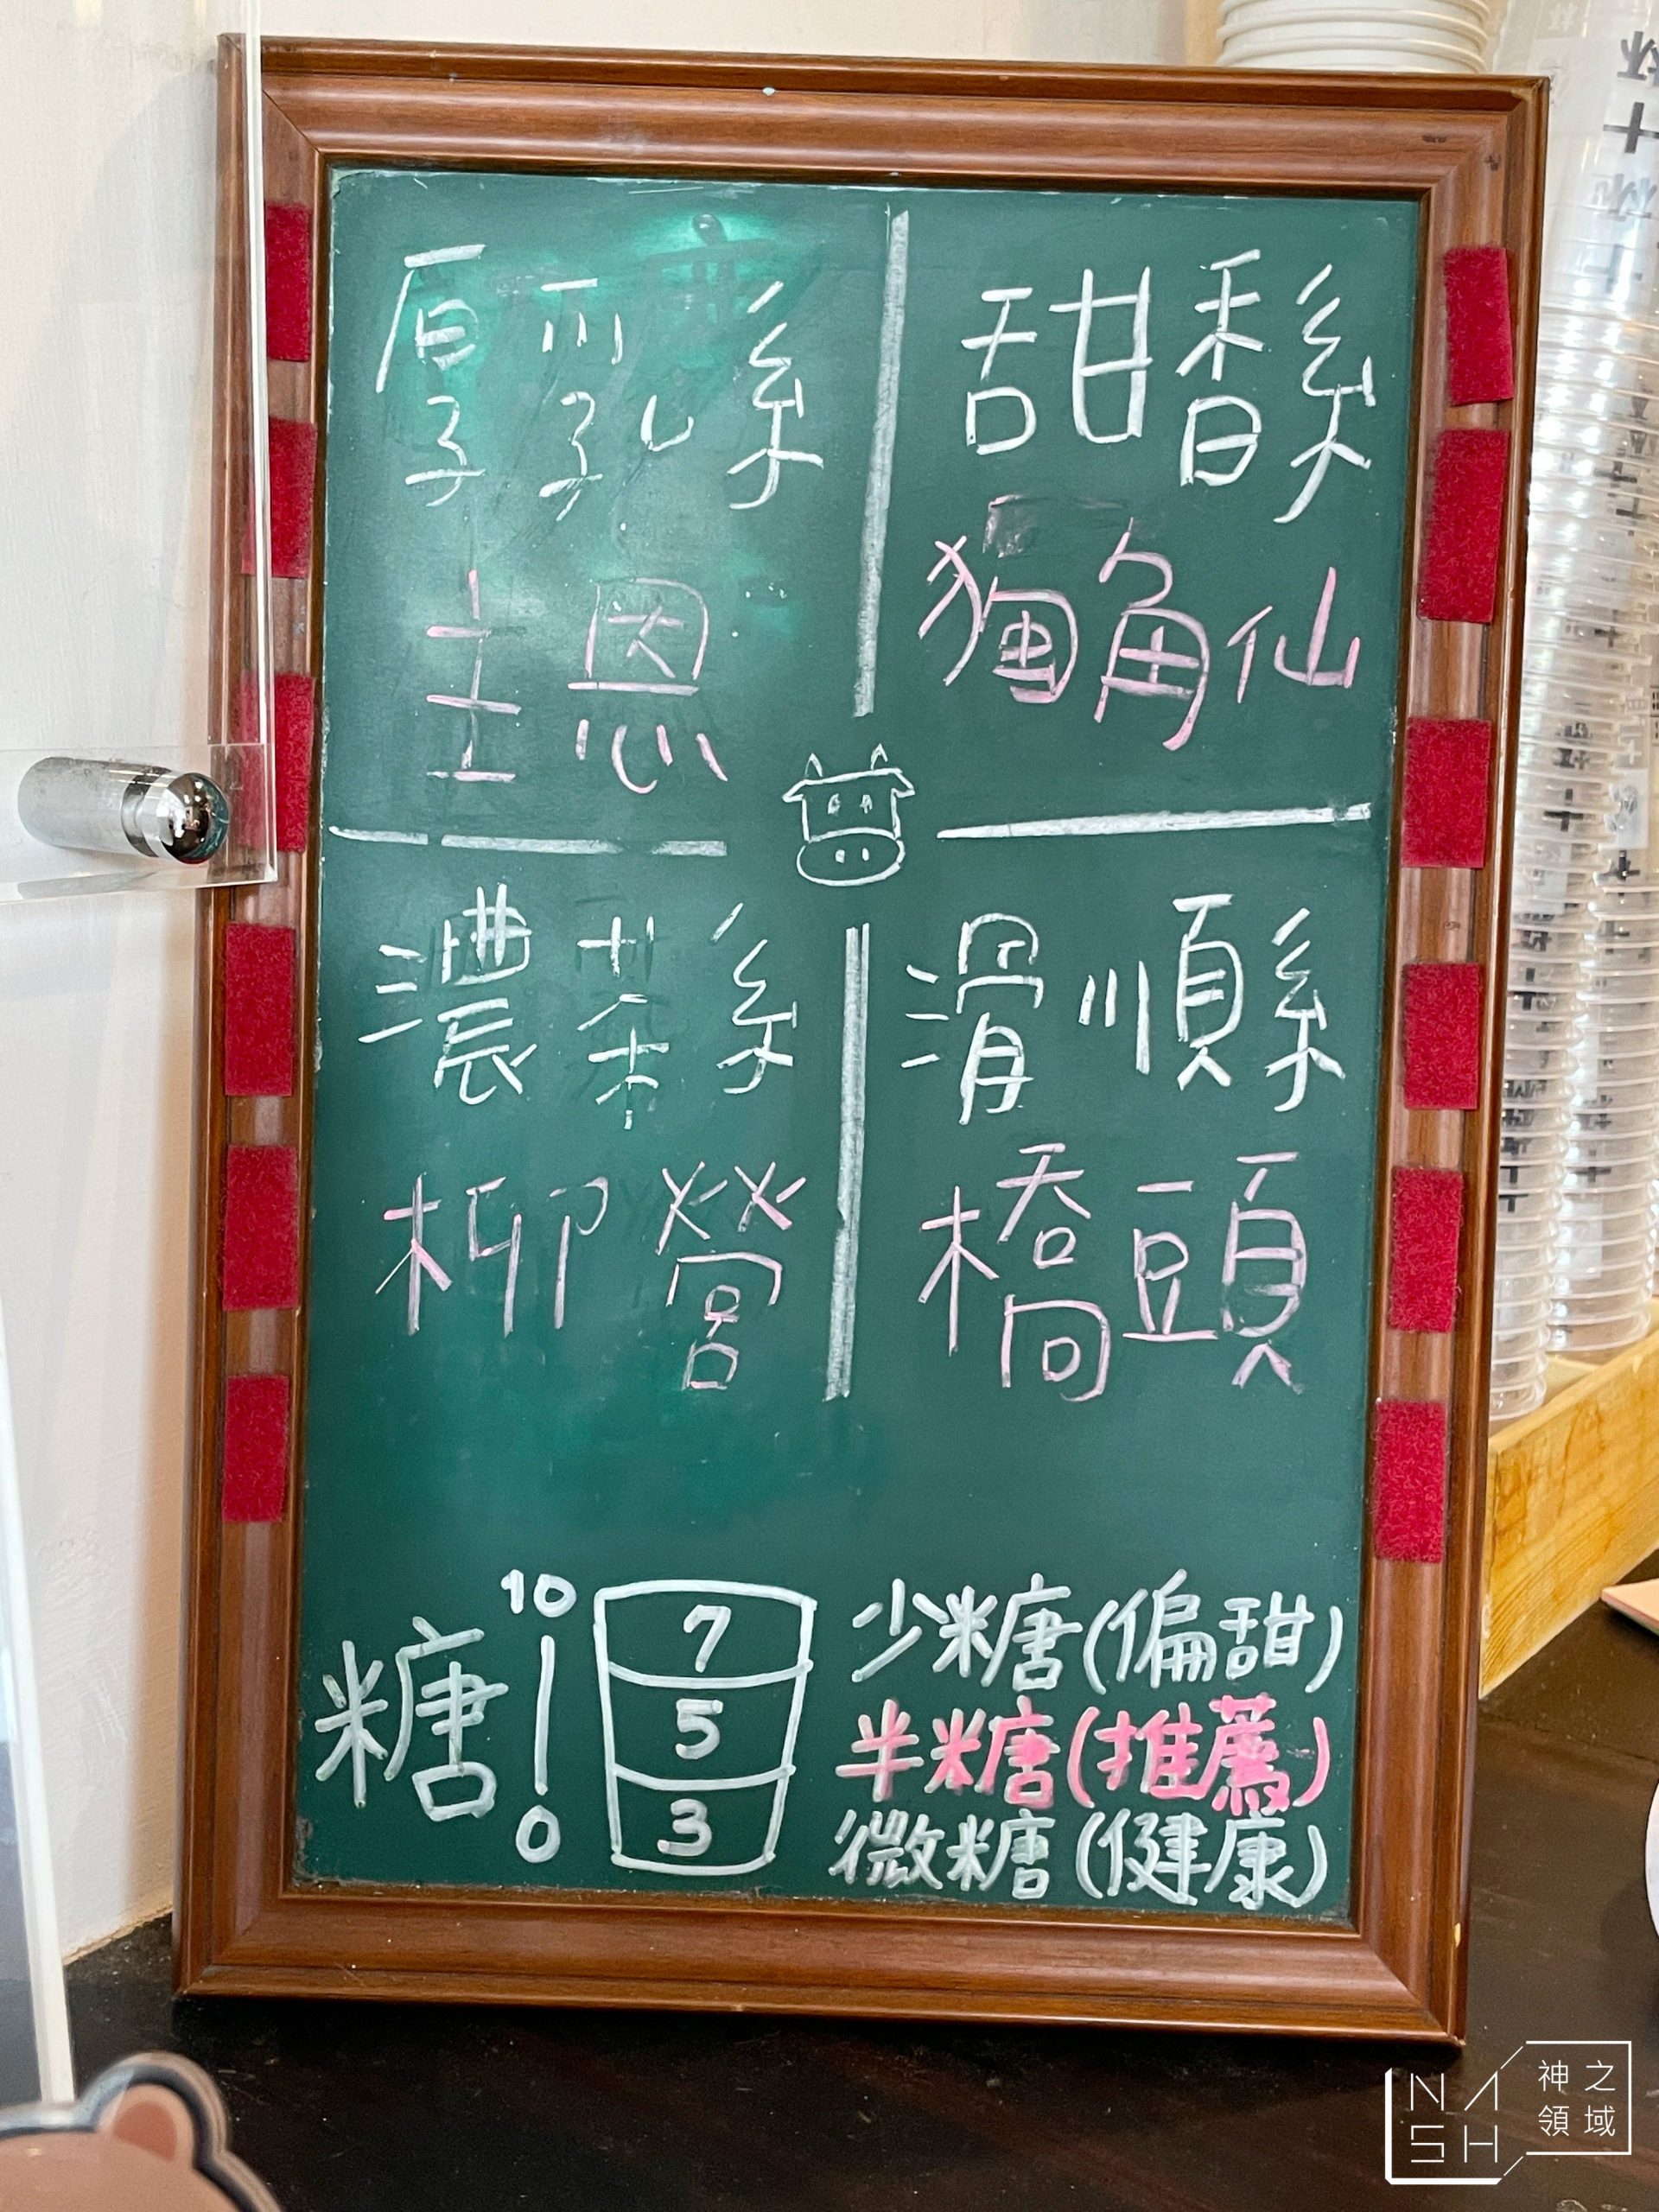 厚乳系
主恩
甜香系
獨角仙
濃茶系
柳營
滑順系
橋頭
糖
10
0
7
5
3
少糖(偏甜)
半糖(推薦)
微糖(健康)
NASH
神之
領域